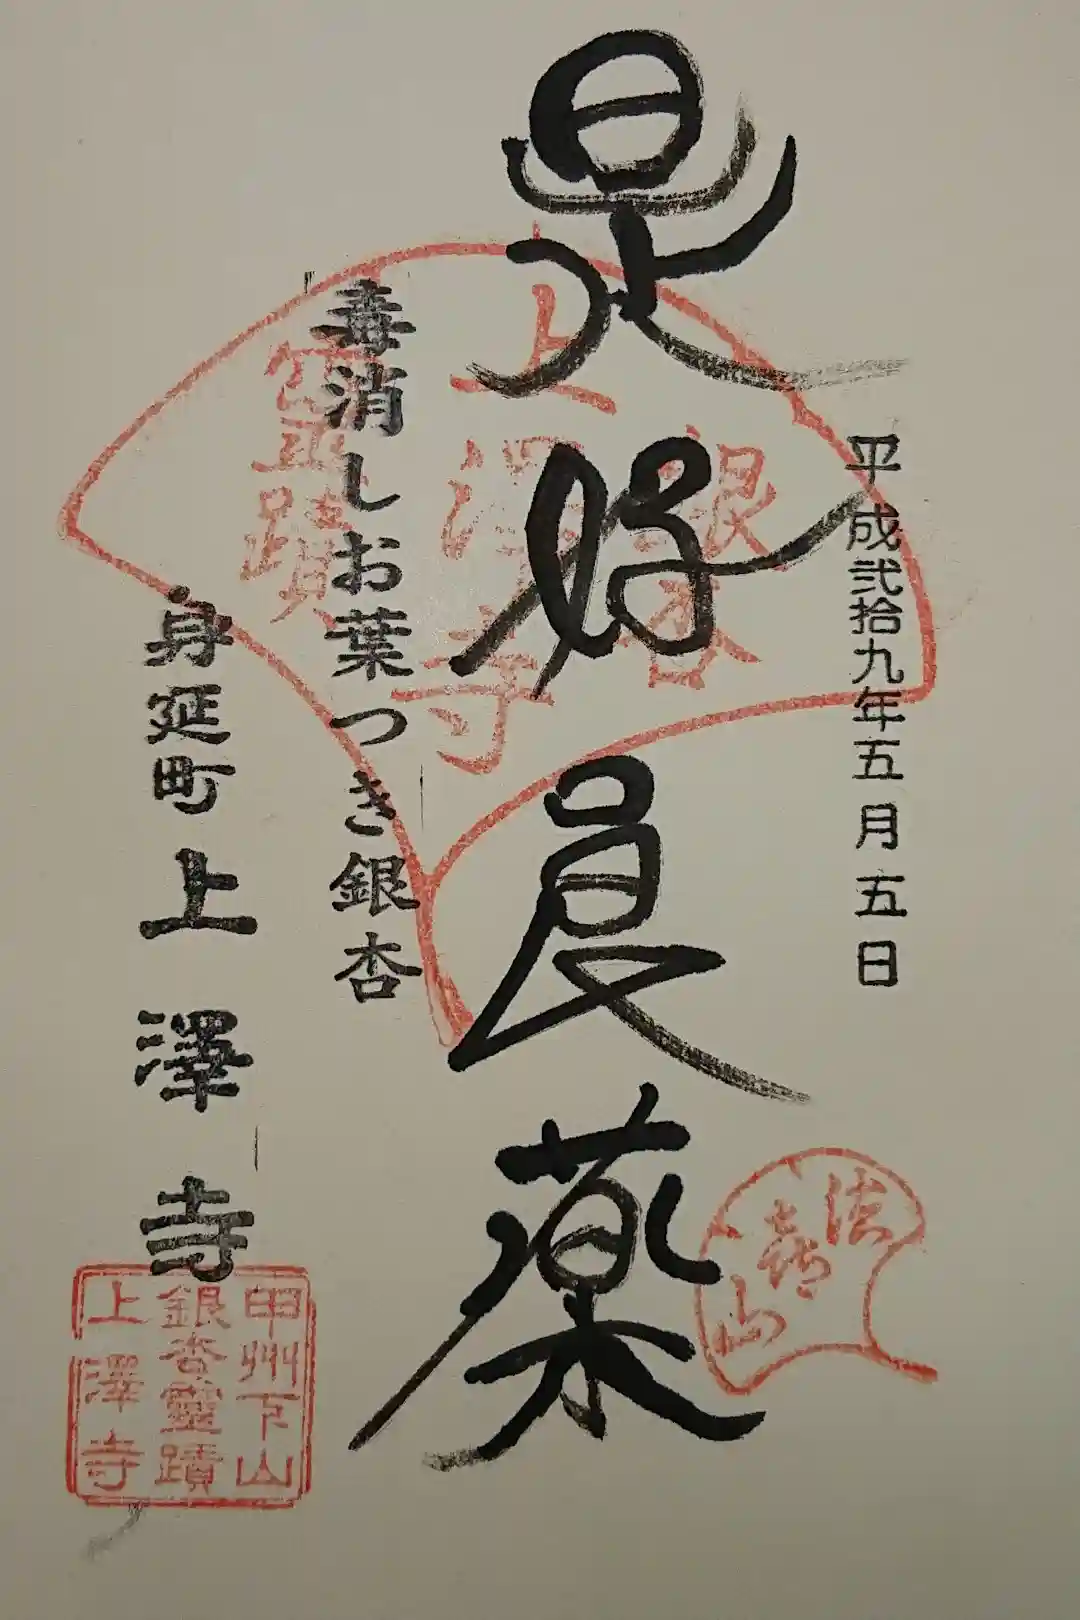 平成弐拾九年五月五日
是好良薬
毒消しお葉つき銀杏
身延町 上澤寺
銀杏
上澤寺
霊蹟
法喜山
甲州下山
銀杏靈蹟
上澤寺